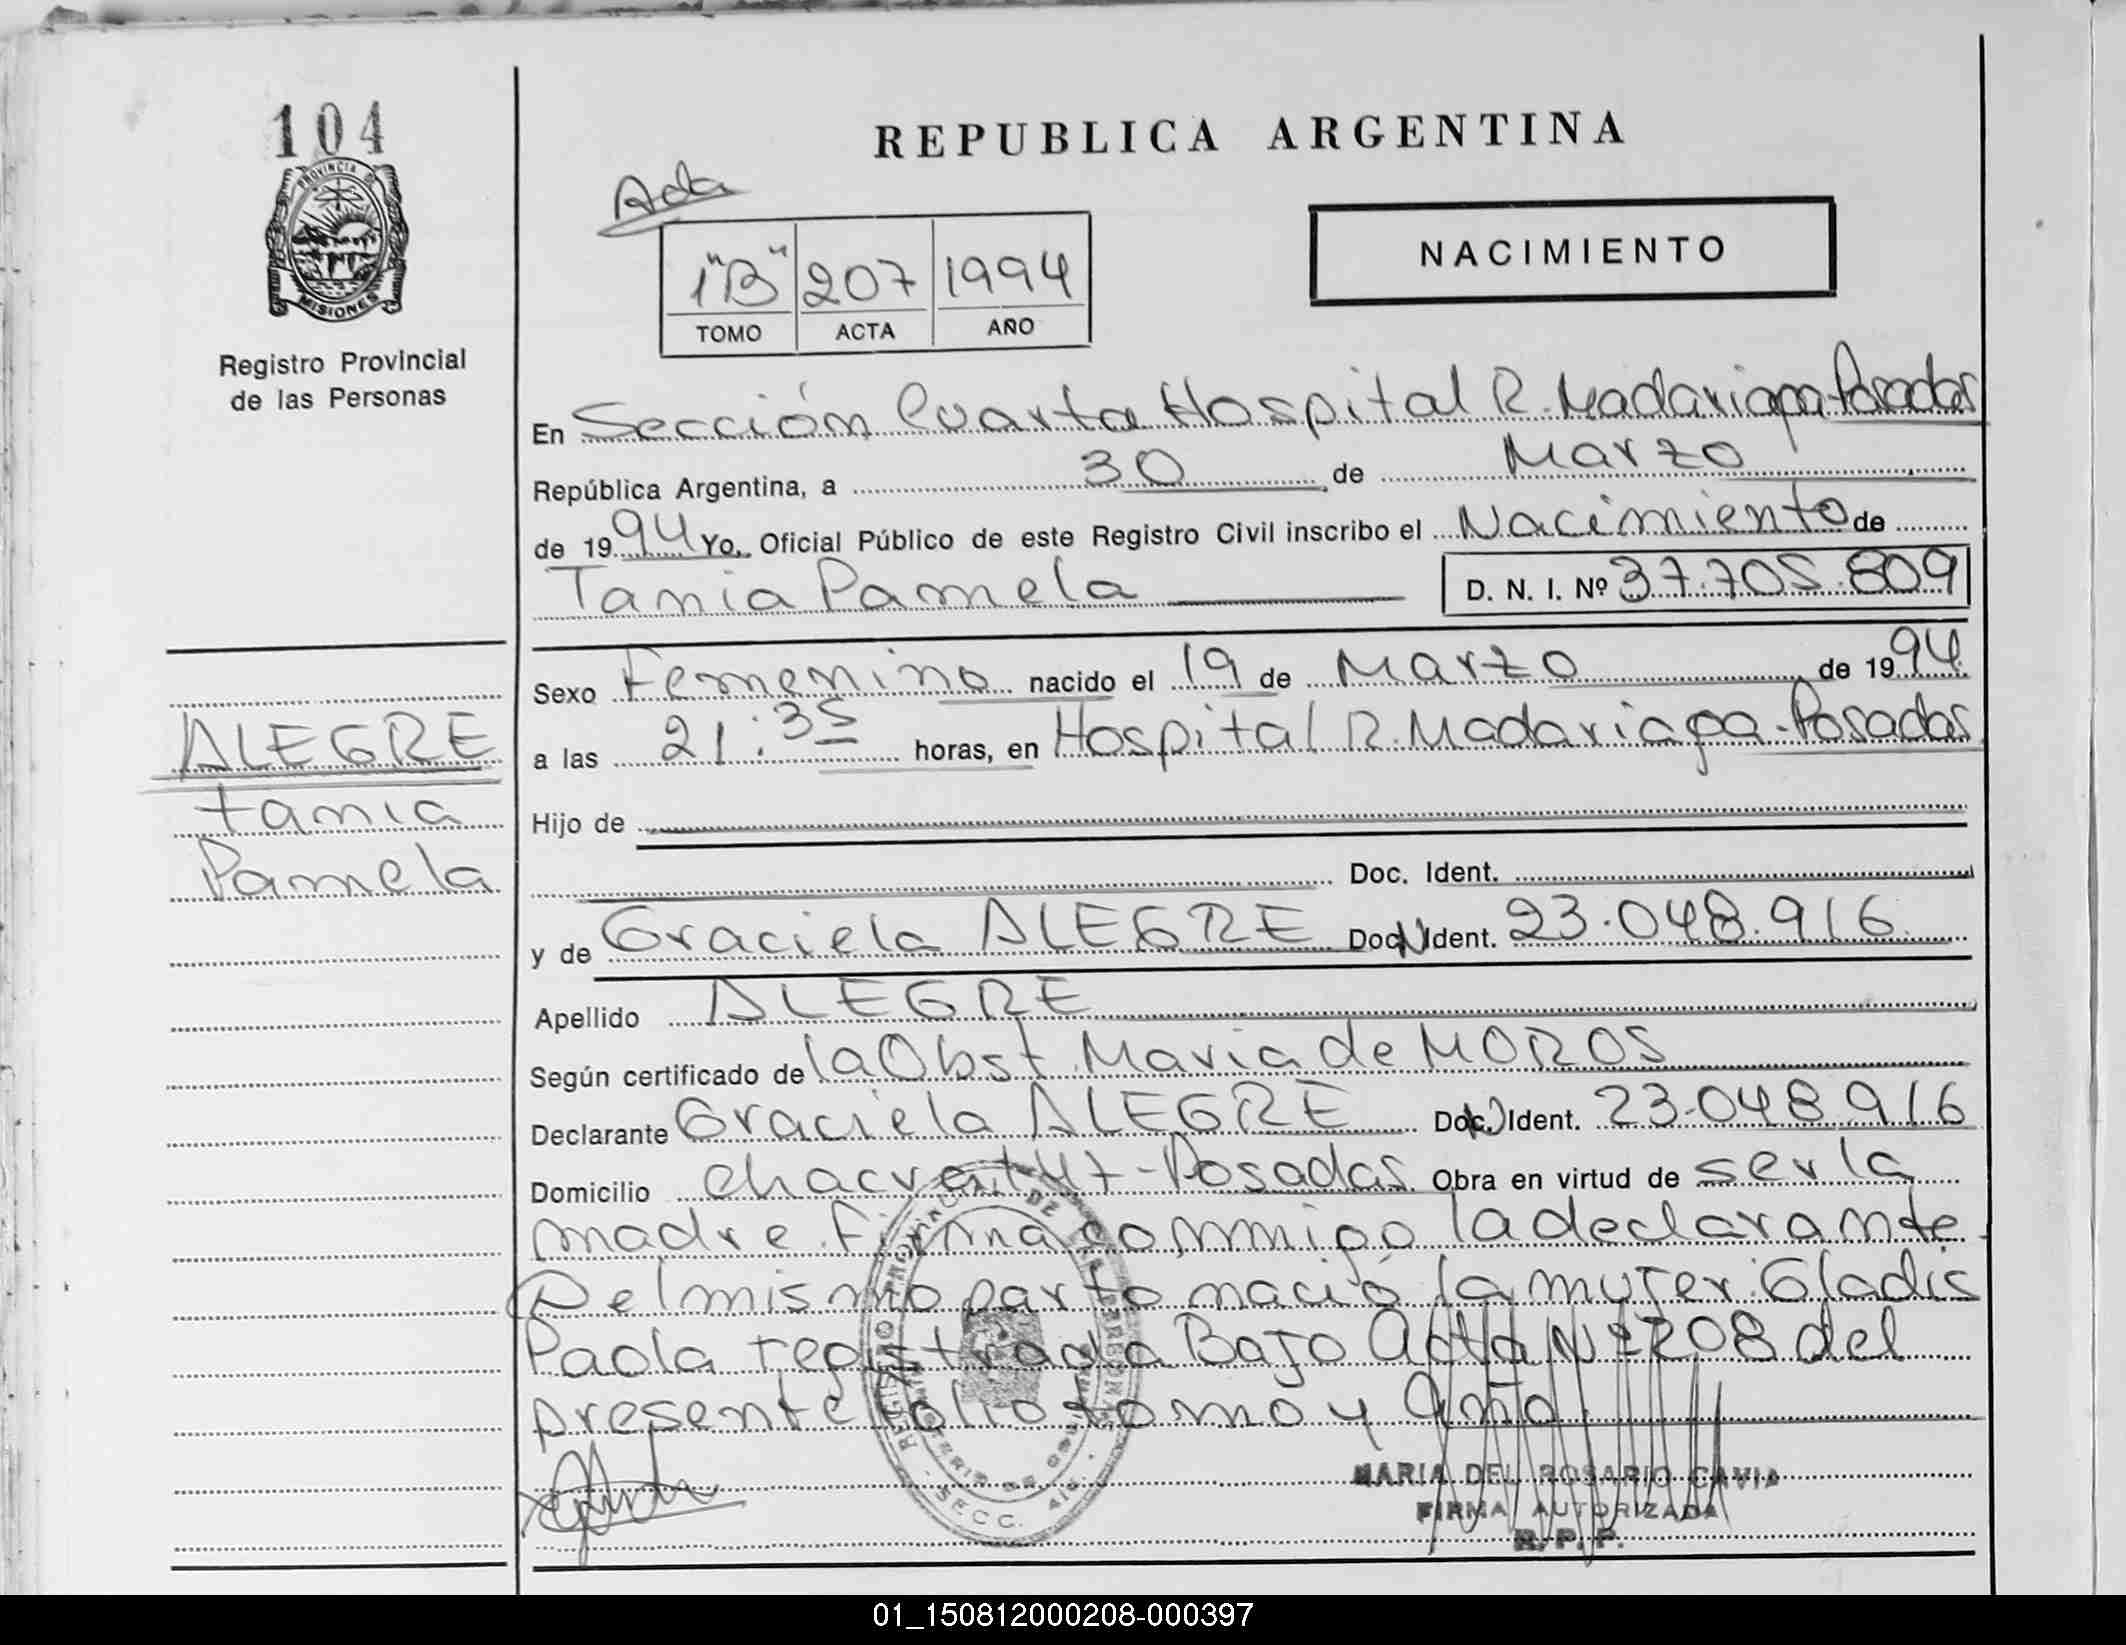 104
PROVINCIA DE
MISIONES
Registro Provincial
de las Personas
REPUBLICA ARGENTINA
NACIMIENTO
1"B" 207 1994
TOMO ACTA AÑO
En Sección Cuarta Hospital R. Madariaga-Posadas
República Argentina, a 30 de Marzo
de 1994 Yo, Oficial Público de este Registro Civil inscribo el Nacimiento de
Tania Pamela D. N. I. Nº 37.705.809
Sexo Femenino nacido el 19 de Marzo de 1994
a las 21:35 horas, en Hospital R. Madariaga-Posadas
Hijo de
Doc. Ident.
y de Graciela ALEGRE Doc. Ident. 23.048.916
Apellido ALEGRE
Según certificado de la Obst. Maria de MOROS
Declarante Graciela ALEGRE Doc. Ident. 23.048.916
Domicilio chacra -Posadas Obra en virtud de ser la
madre. Firma conmigo la declarante.
Del mismo parto nació la mujer: Gladis
Paola registrada Bajo Acta Nº 208 del
presente folio tomo y año.
MARIA DEL ROSARIO CAVIA
FIRMA AUTORIZADA
R. P. P.
ALEGRE
tania
Pamela
01_150812000208-000397